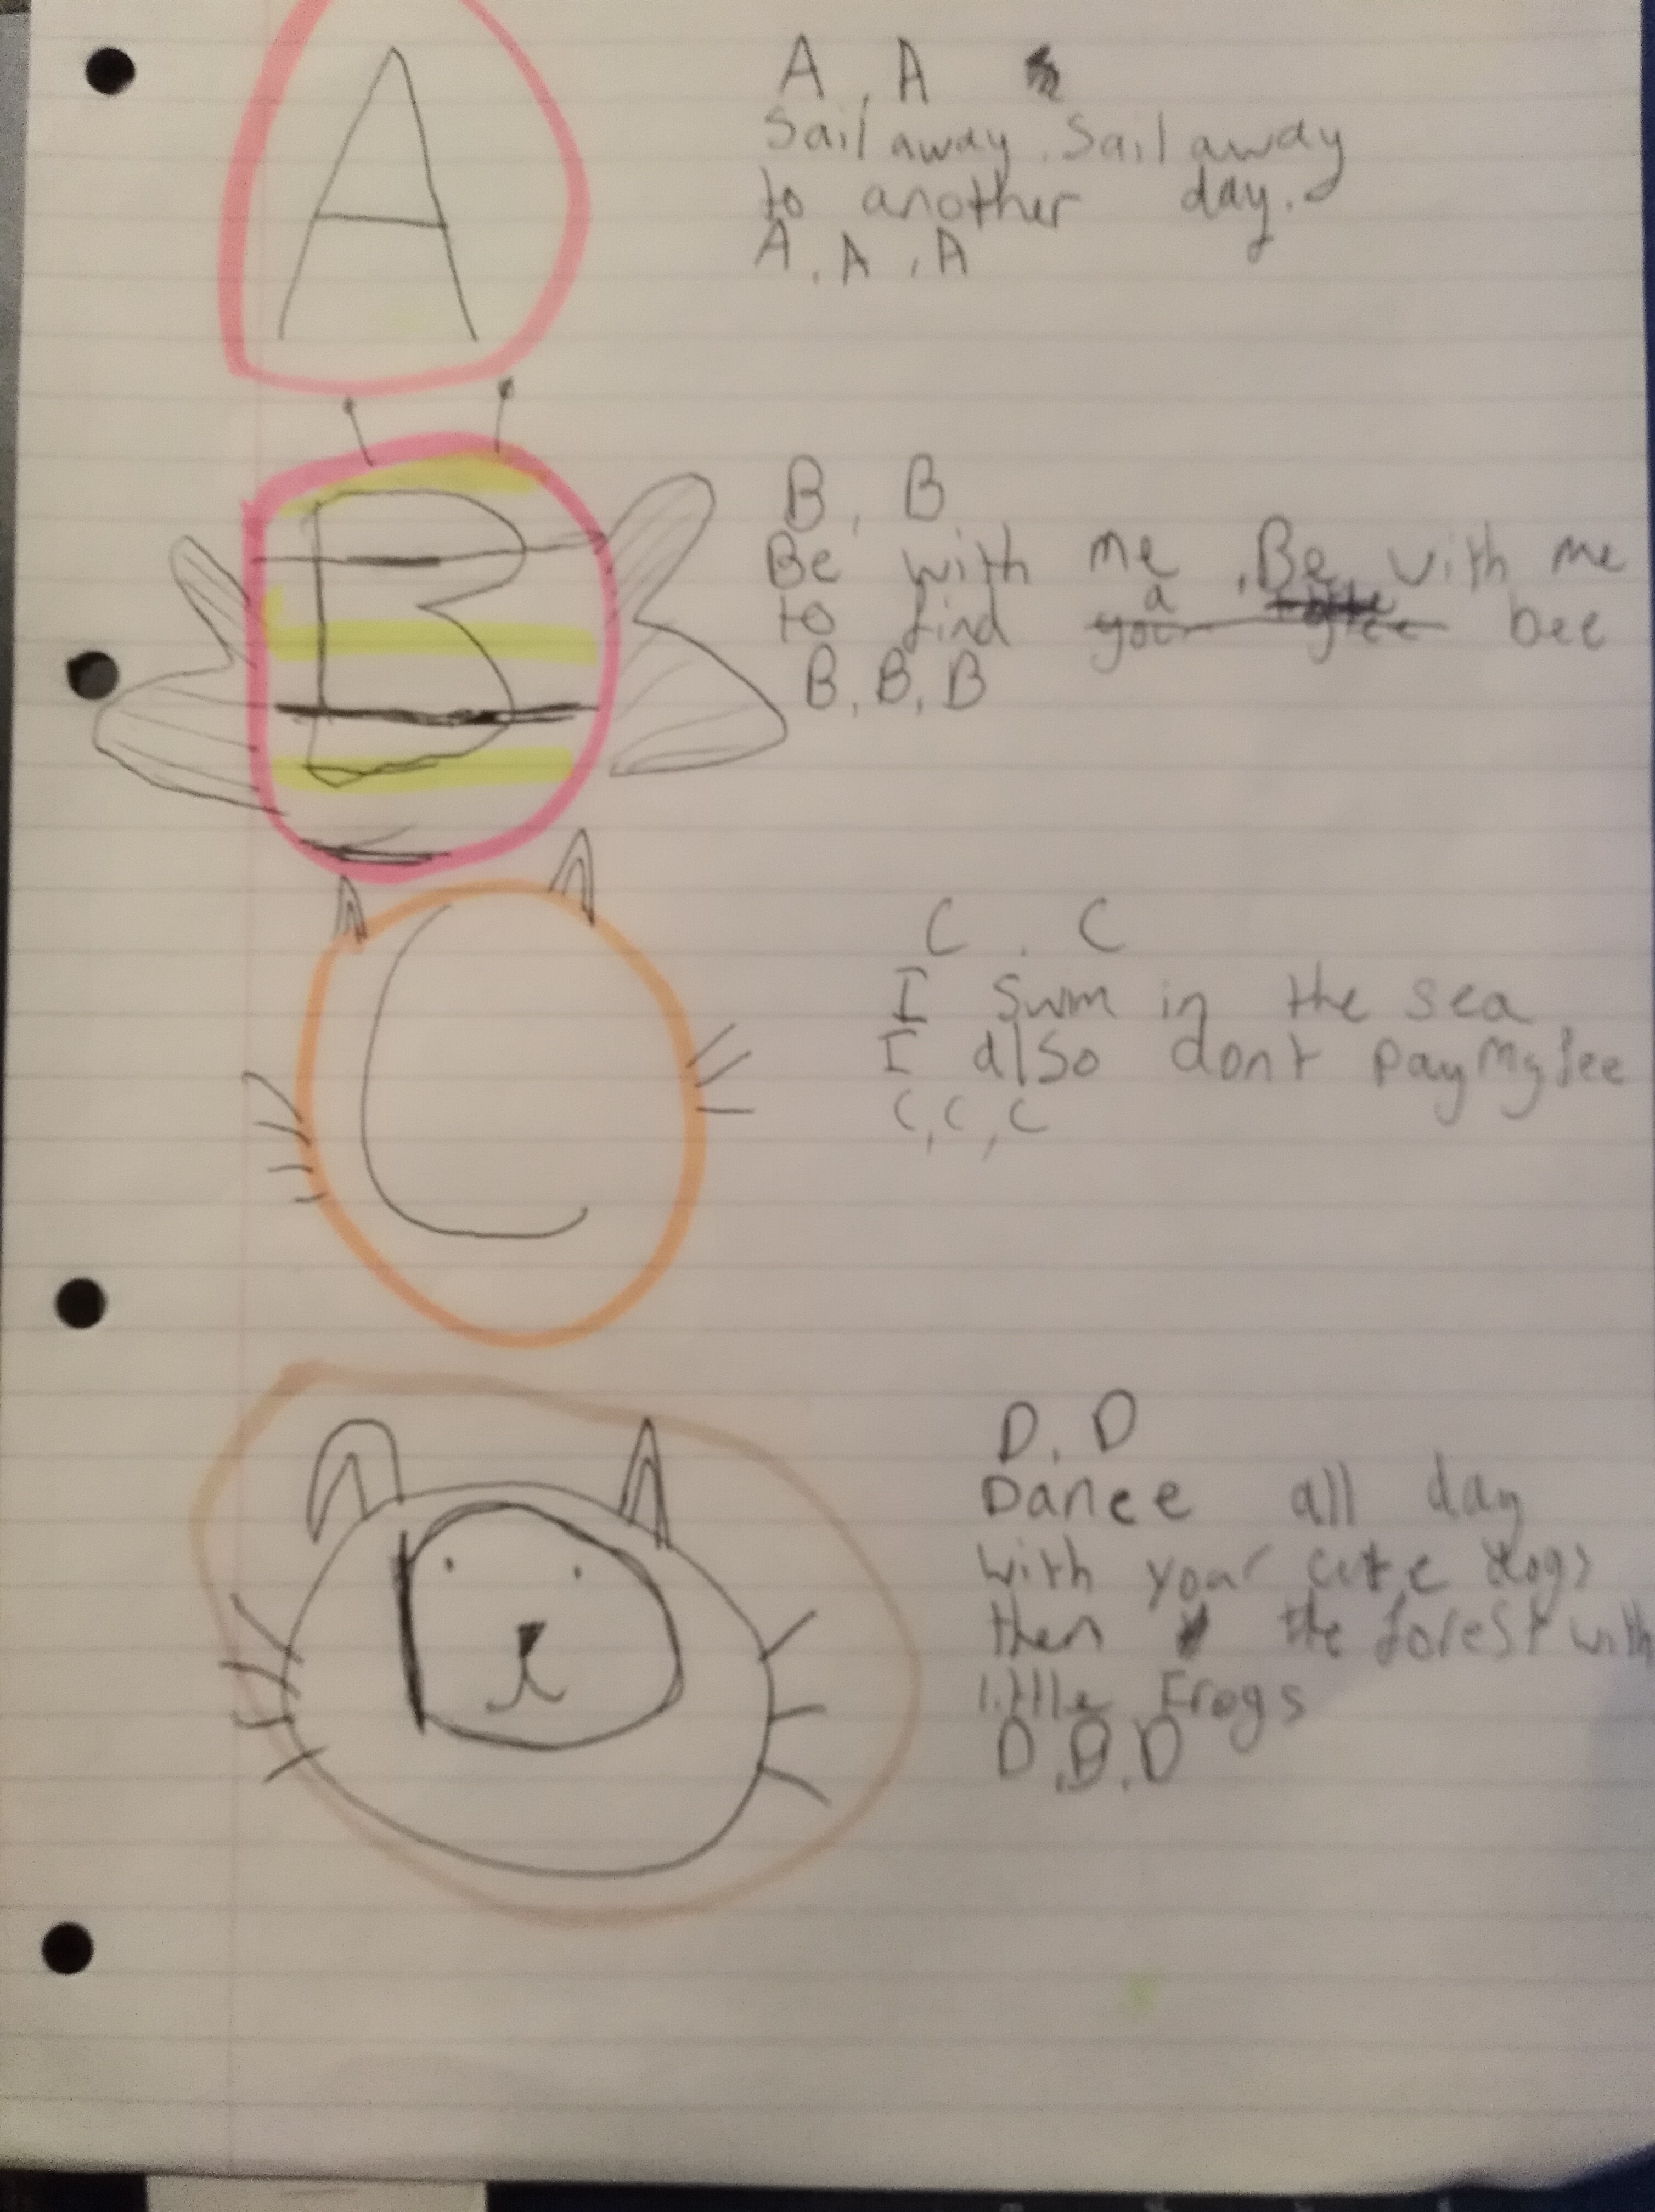 A
A, A
Sail away, Sail away
to another day.
A, A, A
B
B, B
Be with me, Be with me
to find a bee
B, B, B
C
C, C
I swim in the sea
I also dont pay my fee
C, C, C
D
D, D
Dance all day
with your cute dogs
then the forest with
little Frogs
D, D, D